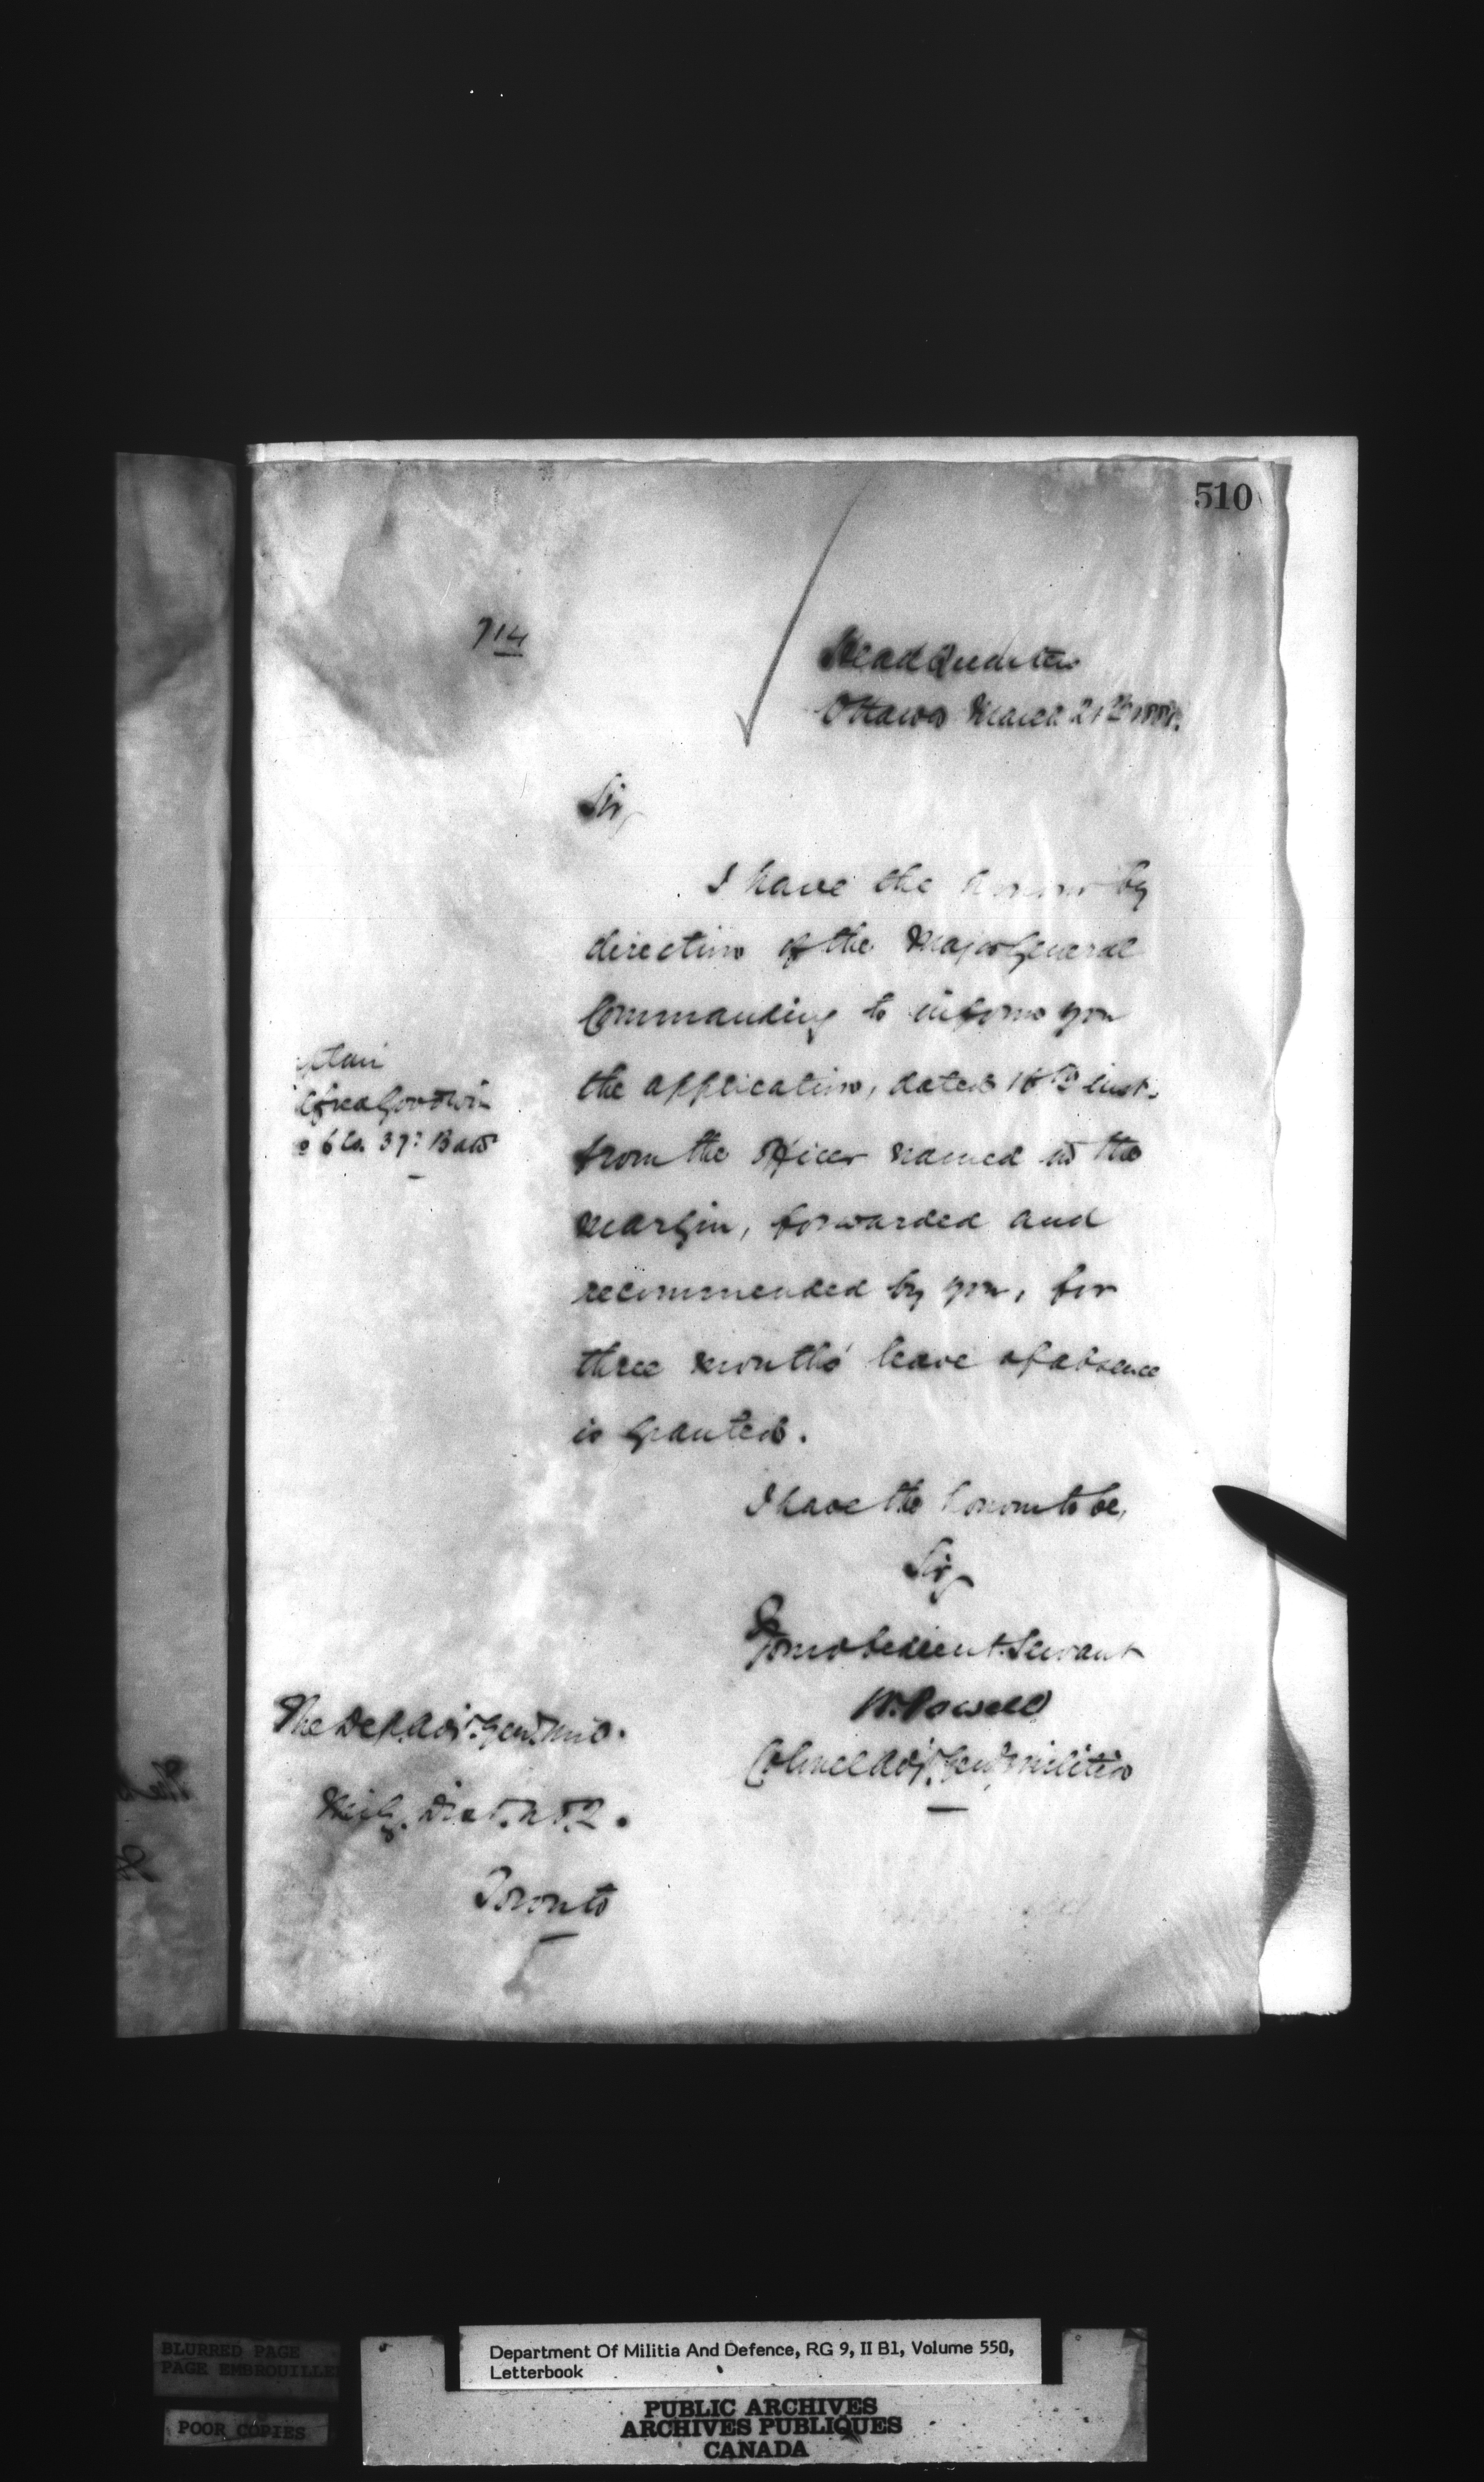 510
714
Head Quarters
Ottawa March 21st
Sir,
I have the honour by
direction of the Major General
Commanding to inform you
the application, dated 18th inst.
from the officer named in the
margin, forwarded and
recommended by you, for
three months' leave of absence
is granted.
ptain
lfred Goodwin
o 6 Co. 37th Batt
I have the honour to be,
Sir,
Your obedient Servant
W. Powell
Colonel Adjt. Genl. Militia
The Dep. Adjt. Genl. Mil.
Mily. Dist. No. 2.
Toronto
BLURRED PAGE
PAGE EMBROUILLE
POOR COPIES
Department Of Militia And Defence, RG 9, II B1, Volume 550,
Letterbook
PUBLIC ARCHIVES
ARCHIVES PUBLIQUES
CANADA